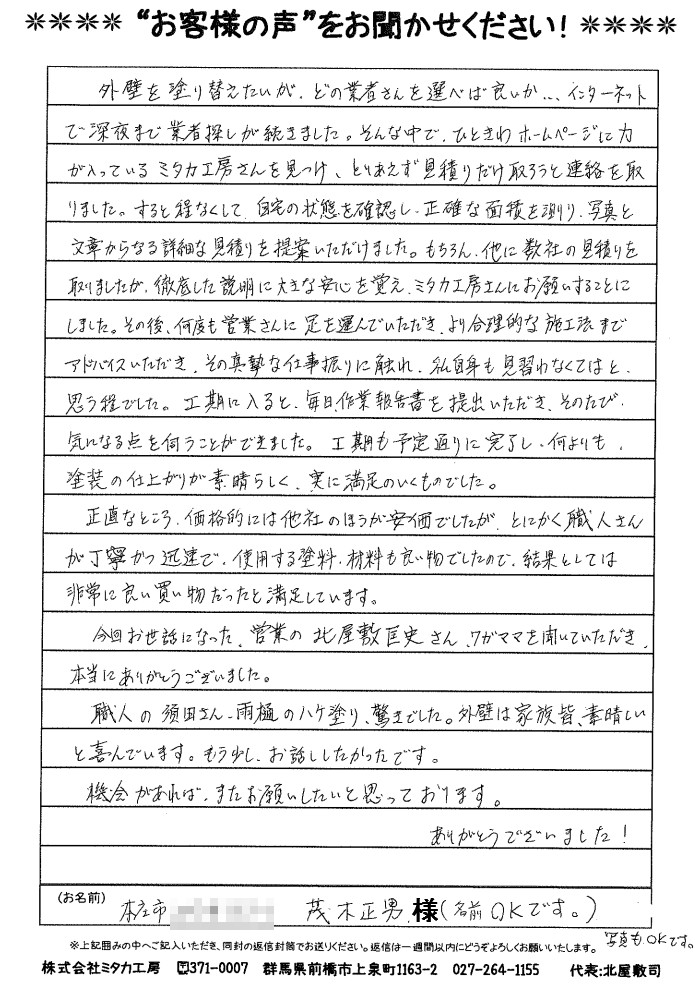 ＊＊＊＊ “お客様の声”をお聞かせください！ ＊＊＊＊
外壁を塗り替えたいが、どの業者さんを選べば良いか…、インターネット
で深夜まで業者探しが続きました。そんな中で、ひときわホームページに力
が入っているミタカ工房さんを見つけ、とりあえず見積りだけ取ろうと連絡を取
りました。すると程なくして、自宅の状態を確認し、正確な面積を測り、写真と
文章からなる詳細な見積りを提案いただけました。もちろん、他に数社の見積りを
取りましたが、徹底した説明に大きな安心を覚え、ミタカ工房さんにお願いすることに
しました。その後、何度も営業さんに足を運んでいただき、より合理的な施工法まで
アドバイスいただき、その真摯な仕事振りに触れ、私自身も見習わなくてはと、
思う程でした。工期に入ると、毎日、作業報告書を提出いただき、そのたび、
気になる点を伺うことができました。工期も予定通りに完了し、何よりも、
塗装の仕上がりが素晴らしく、実に満足のいくものでした。
正直なところ、価格的には他社のほうが安価でしたが、とにかく職人さん
が丁寧かつ迅速で、使用する塗料、材料も良い物でしたので、結果としては
非常に良い買い物だったと満足しています。
今回お世話になった、営業の北屋敷匡史さん、ワガママを聞いていただき、
本当にありがとうございました。
職人の須田さん、雨樋のハケ塗り、驚きでした。外壁は家族皆、素晴しい
と喜んでいます。もう少し、お話ししたかったです。
機会があれば、またお願いしたいと思っております。
ありがとうございました！
(お名前) 本庄市 茂木正男 様(名前OKです。)
写真もOKです。
※上記囲みの中へご記入いただき、同封の返信封筒でお送りください。返信は一週間以内にどうぞよろしくお願いいたします。
株式会社ミタカ工房 〒371-0007 群馬県前橋市上泉町1163-2 027-264-1155 代表:北屋敷司